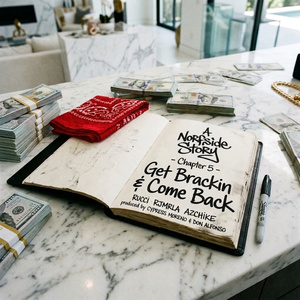 A
Norfside
Story
- Chapter 5 -
Get Brackin
& Come Back
RUCCI RJMRLA AZCHIKE
produced by CYPRESS MORENO & DON ALFONSO